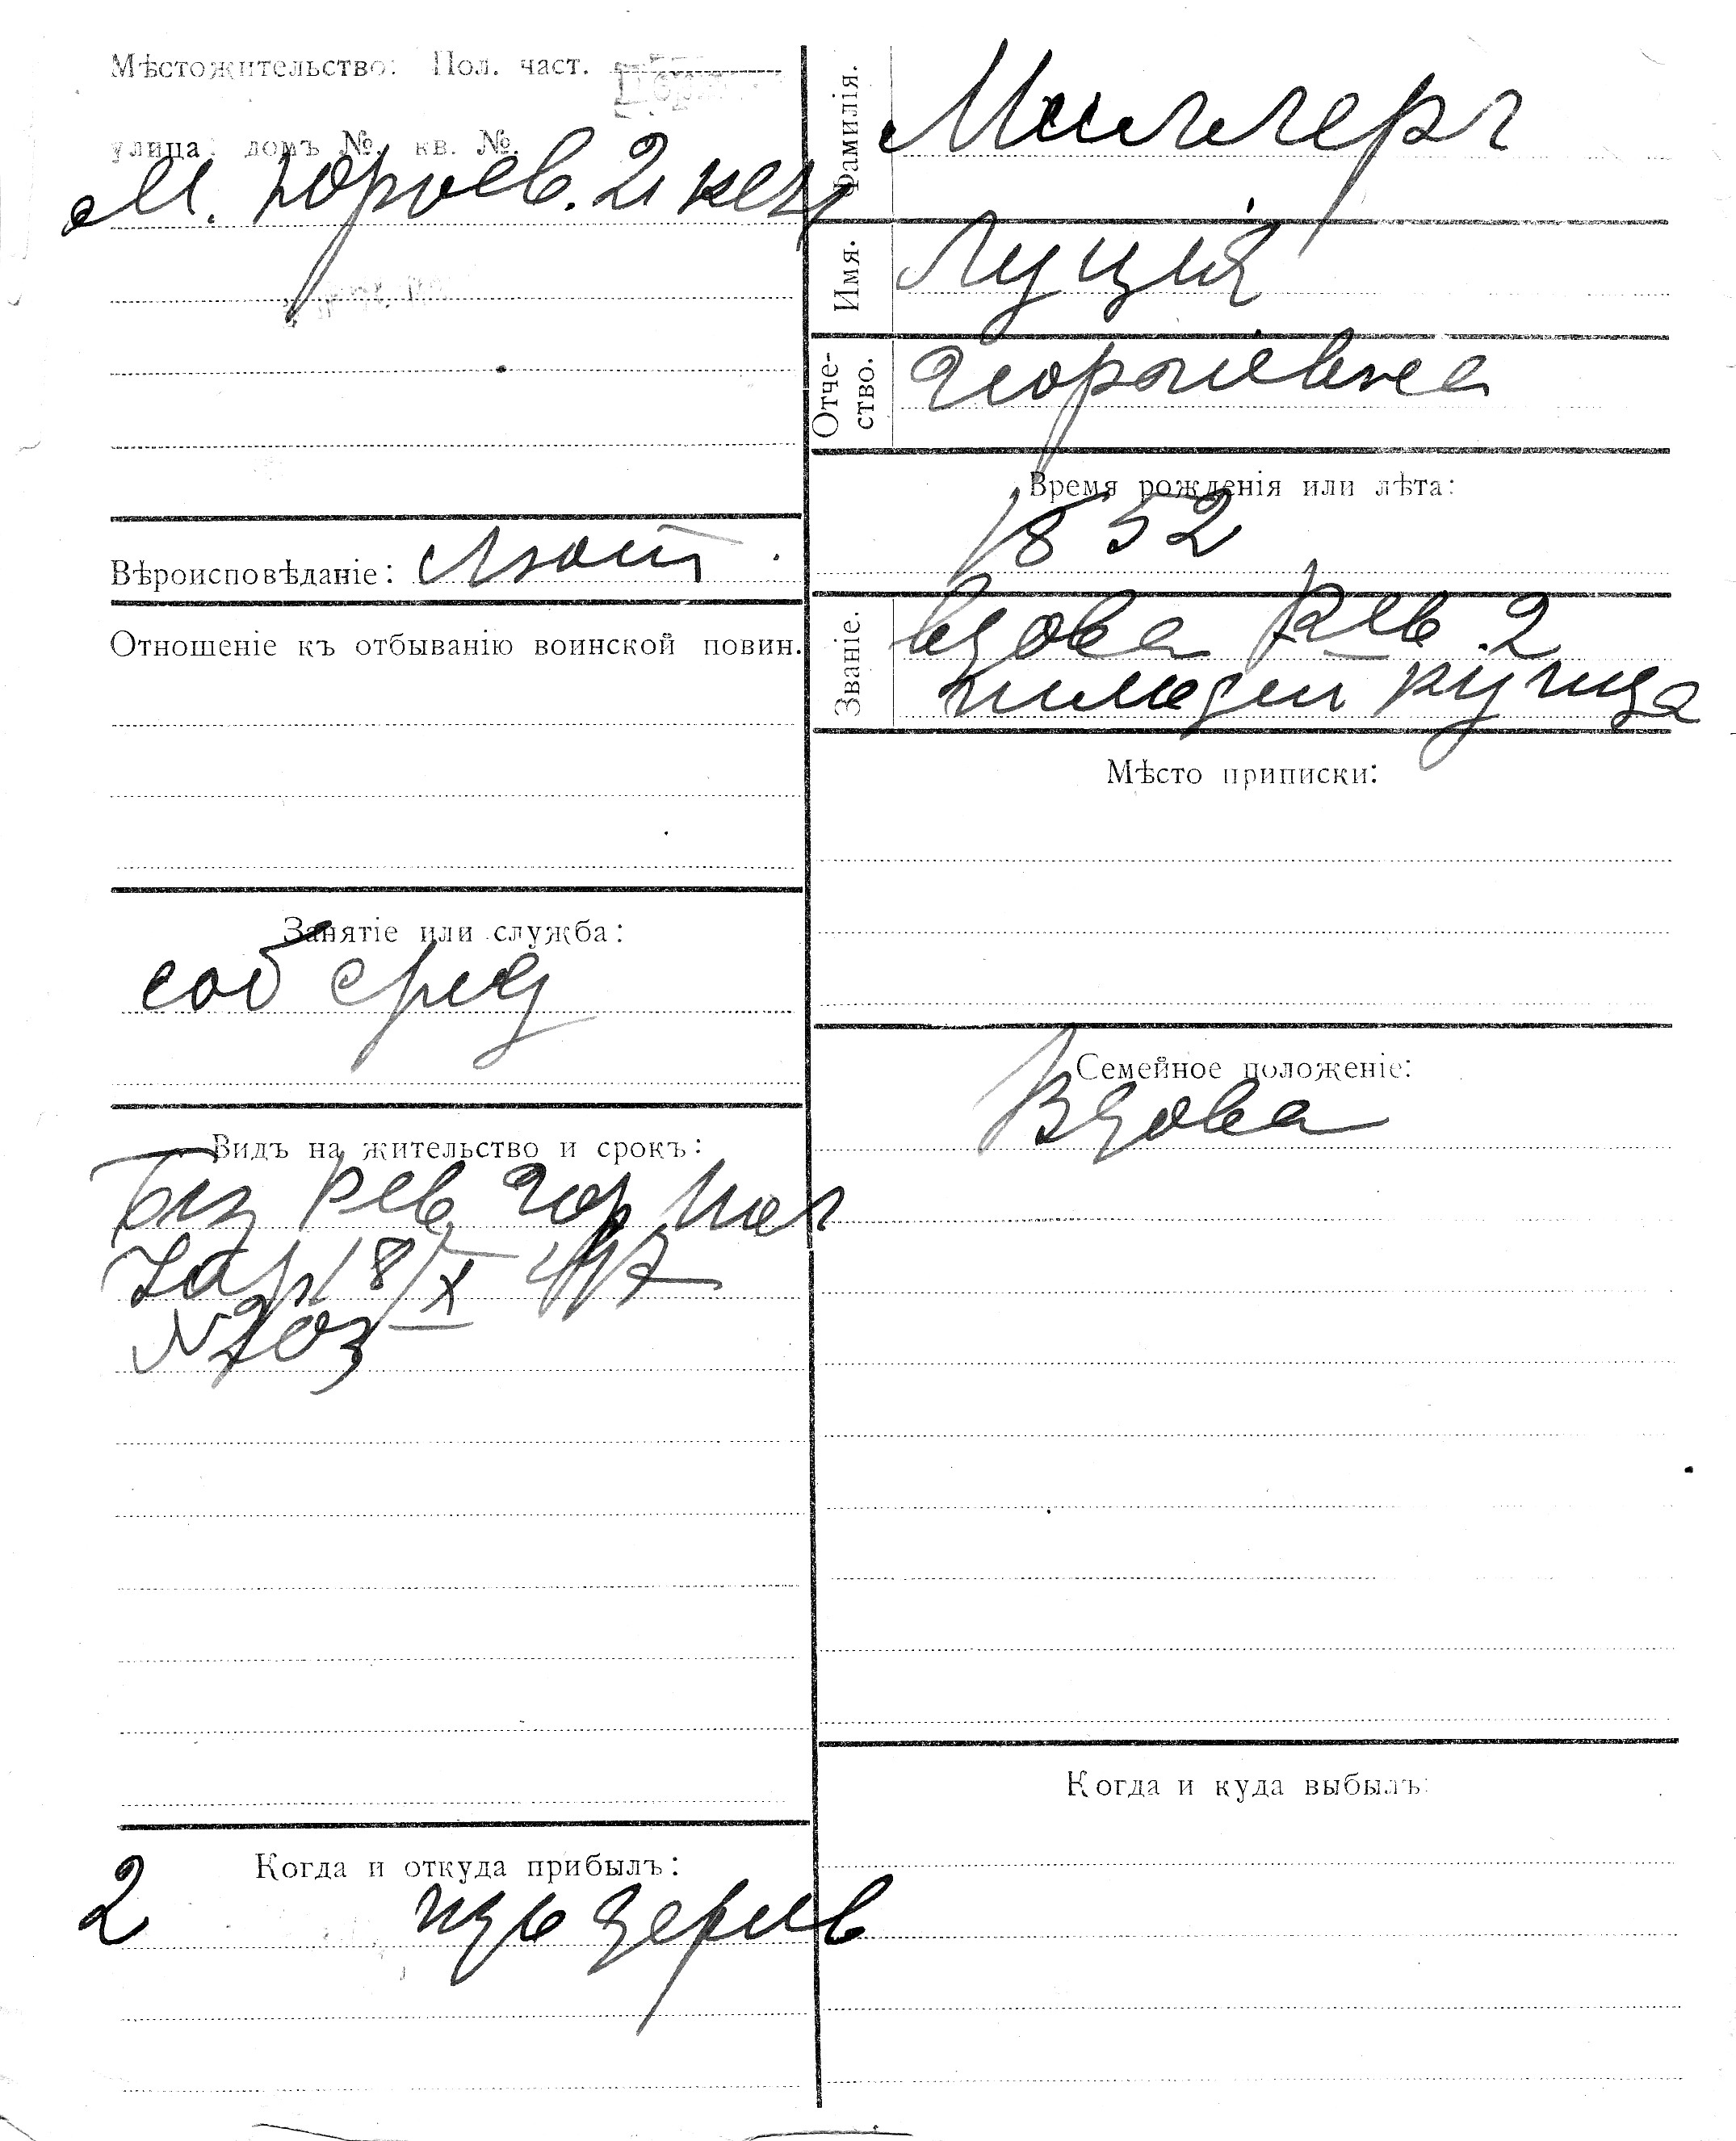 Мѣстожительство: Пол. част.
улица: домъ № кв. №.
М. Юрьев. 2 кв
Вѣроисповѣданіе: Лют.
Отношеніе къ отбыванію воинской повин.
Занятіе или служба:
соб сред
Видъ на жительство и срокъ:
Без Рев Гор Пол
18/X 1917
№
Когда и откуда прибылъ:
2
Фамилія.
Миллеръ
Имя.
Луція
Отче-
ство.
Георгіевна
Время рожденія или лѣта:
1852
Званіе.
вдова Рев 2
гильдіи купца
Мѣсто приписки:
Семейное положеніе:
Вдова
Когда и куда выбылъ: